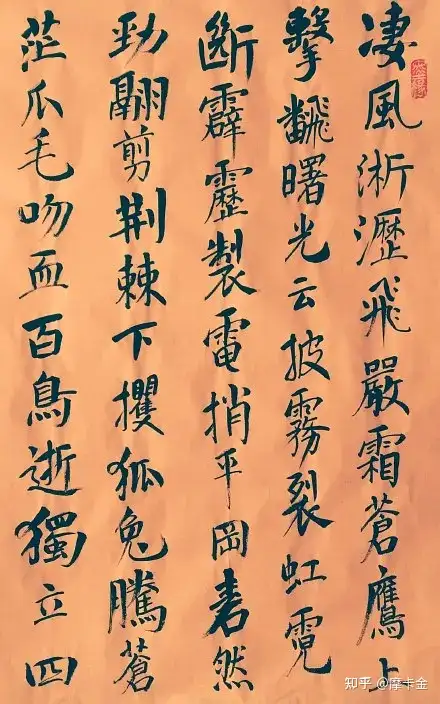 凄風淅瀝飛嚴霜蒼鷹上
擊飜曙光云披霧裂虹霓
斷霹靂製電捎平岡砉然
勁翮剪荆棘下攫狐兔騰蒼
茫爪毛吻血百鳥逝獨立四
知乎 @摩卡金